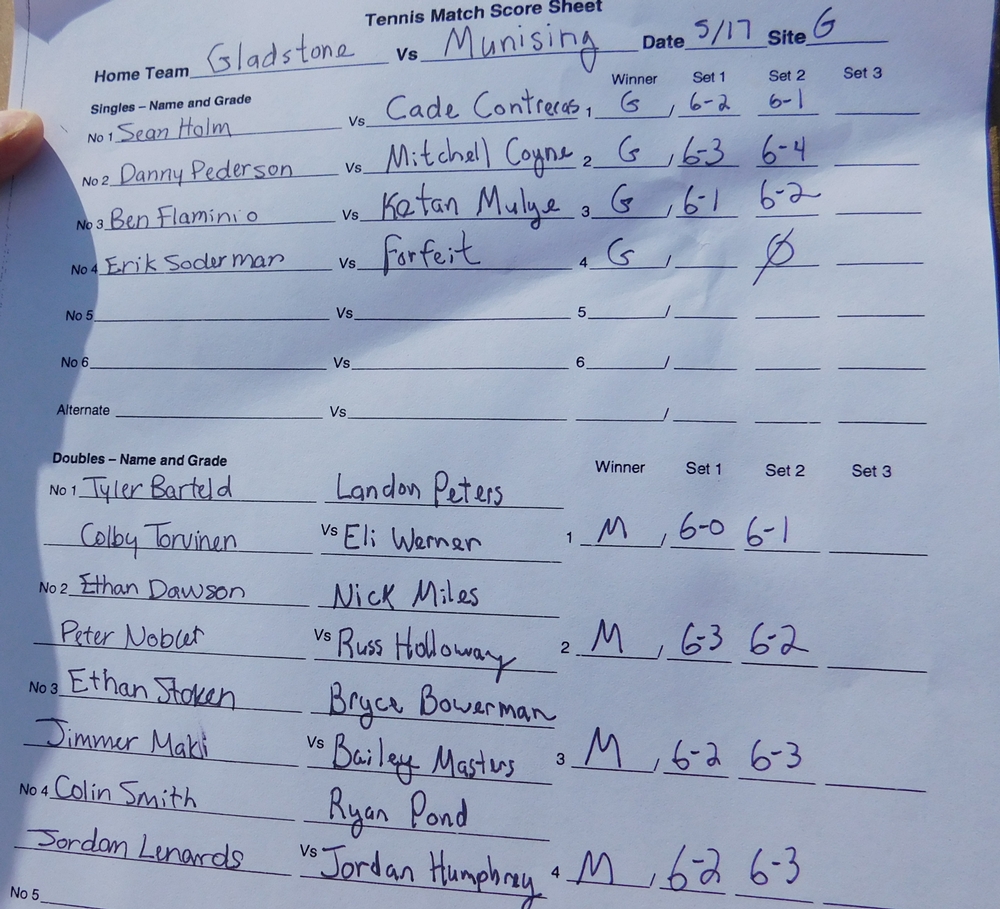 Tennis Match Score Sheet
Home Team Gladstone Vs Munising Date 5/17 Site G
Singles – Name and Grade Winner Set 1 Set 2 Set 3
No 1 Sean Holm Vs Cade Contreras 1 G / 6-2 6-1
No 2 Danny Pederson Vs Mitchell Coyne 2 G / 6-3 6-4
No 3 Ben Flaminio Vs Ketan Mulye 3 G / 6-1 6-2
No 4 Erik Soderman Vs Forfeit 4 G / Ø
No 5 Vs 5 /
No 6 Vs 6 /
Alternate Vs /
Doubles – Name and Grade Winner Set 1 Set 2 Set 3
No 1 Tyler Barteld Landon Peters
Colby Torvinen Vs Eli Werner 1 M / 6-0 6-1
No 2 Ethan Dawson Nick Miles
Peter Noblet Vs Russ Holloway 2 M / 6-3 6-2
No 3 Ethan Stoken Bryce Bowerman
Jimmer Maki Vs Bailey Masters 3 M / 6-2 6-3
No 4 Colin Smith Ryan Pond
Jordan Lenards Vs Jordan Humphrey 4 M / 6-2 6-3
No 5